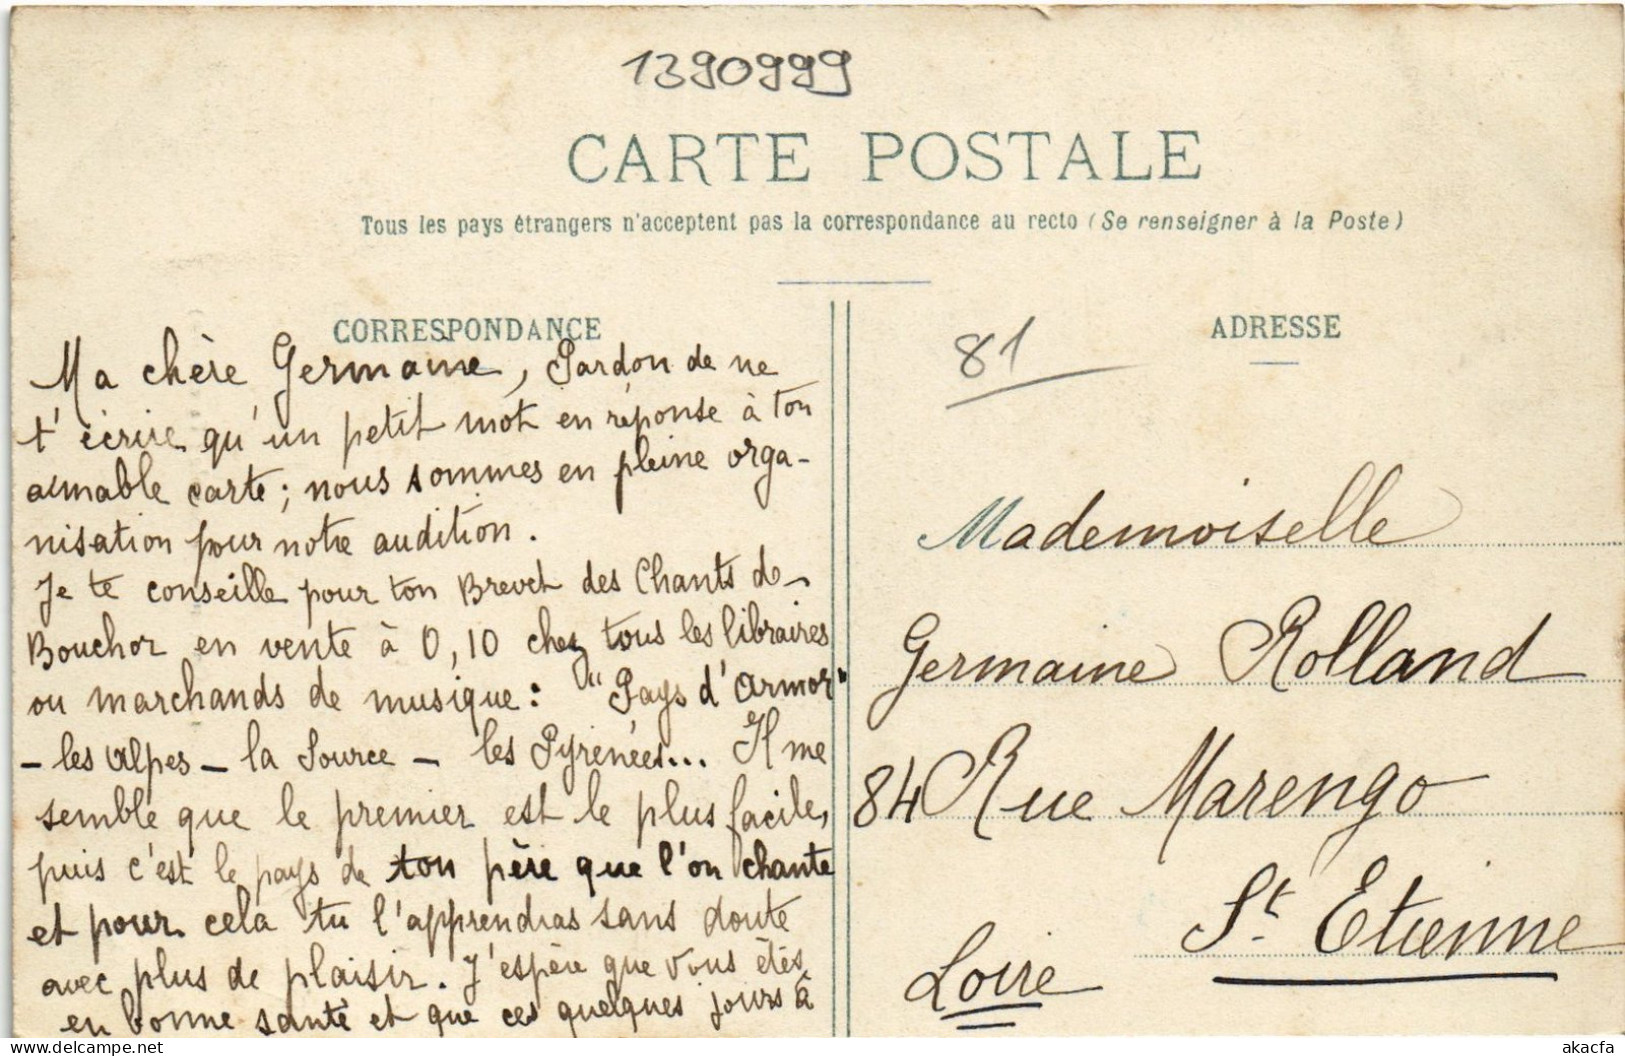 1390999
CARTE POSTALE
Tous les pays étrangers n'acceptent pas la correspondance au recto (Se renseigner à la Poste)
CORRESPONDANCE
Ma chère Germaine, Pardon de ne
t'écrire qu'un petit mot en réponse à ton
aimable carte ; nous sommes en pleine orga-
nisation pour notre audition.
Je te conseille pour ton Brevet des Chants de
Bouchor en vente à 0,10 chez tous les libraires
ou marchands de musique : "Pays d'armor"
- les Alpes - la Source - les Pyrénées... Il me
semble que le premier est le plus facile,
puis c'est le pays de ton père que l'on chante
et pour cela tu l'apprendras sans doute
avec plus de plaisir. J'espère que vous êtes
en bonne santé et que ces quelques jours à
81
ADRESSE
Mademoiselle
Germaine Rolland
84 Rue Marengo
St. Etienne
Loire
akacfa